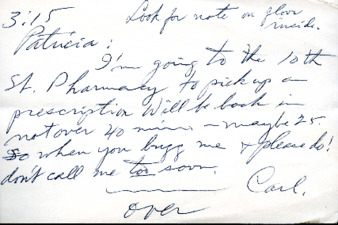 3:15 Look for note on floor inside.
Patricia:
I'm going to the 10th
St. Pharmacy to pick up a
prescription Will be back in
not over 40 min – maybe 25
So when you bugg me & please do!
don't call me too soon.
Carl.
over